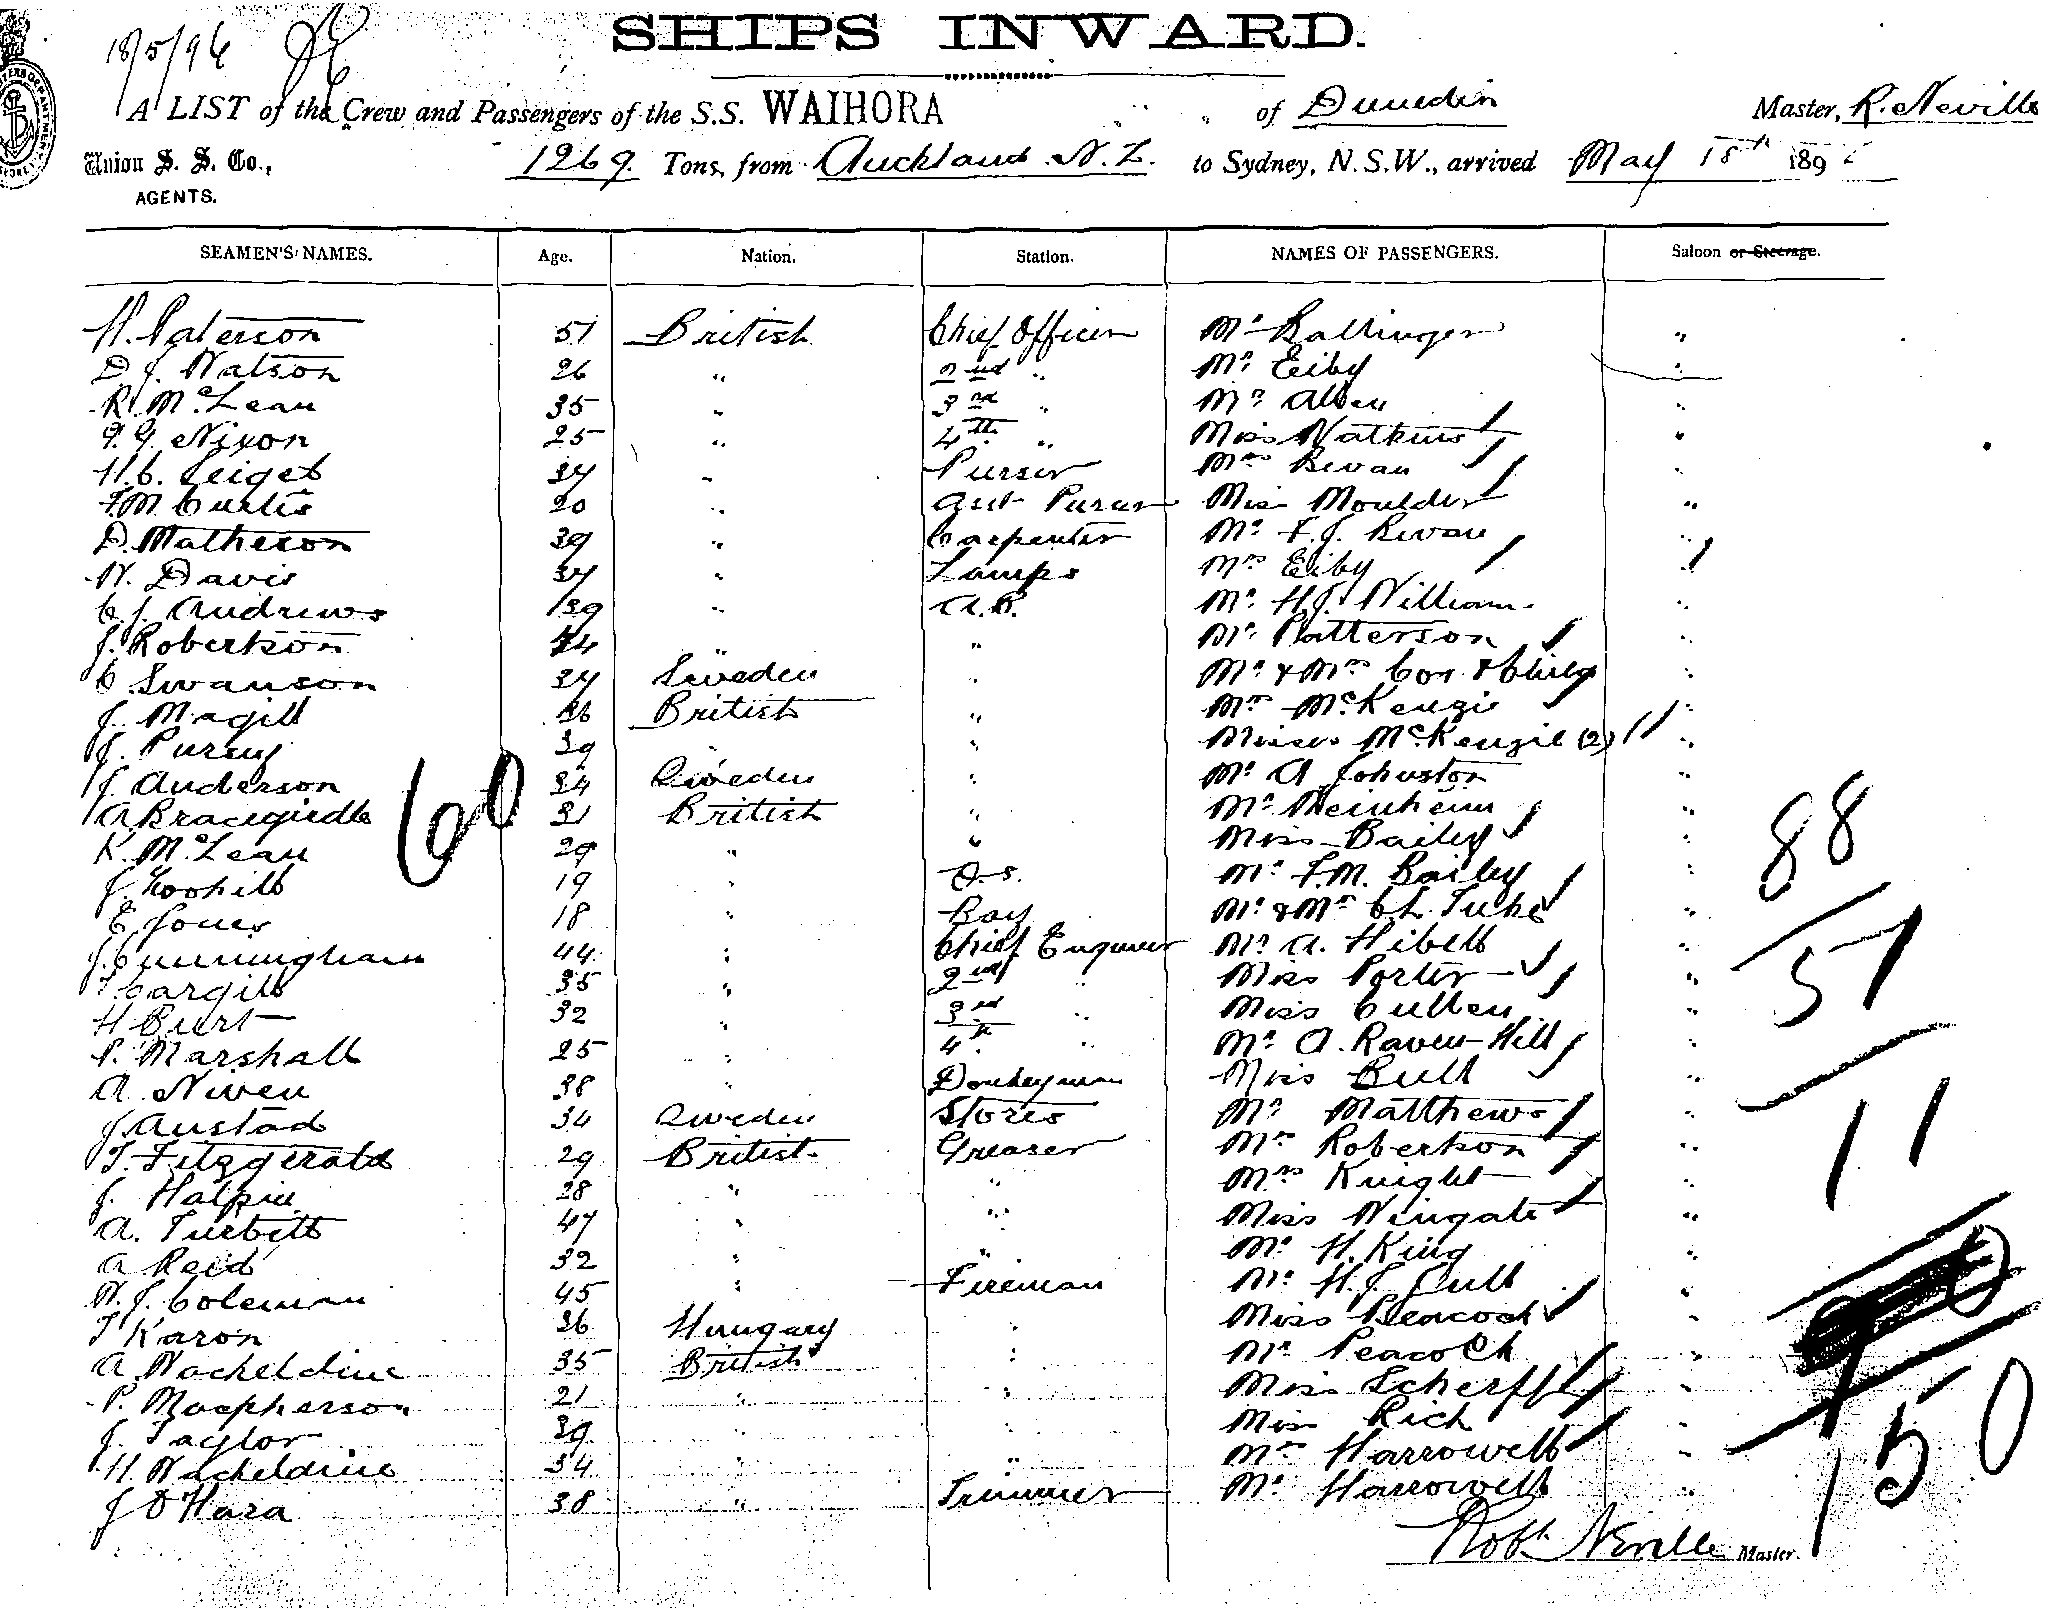 SHIPS INWARD.
18/5/96
A LIST of the Crew and Passengers of the S.S. WAIHORA " " of Dunedin Master, R. Neville
Union S. S. Co., 1269. Tons, from Auckland N.Z. to Sydney, N.S.W., arrived May 18th 1896
AGENTS.
SEAMEN'S NAMES. Age. Nation. Station. NAMES OF PASSENGERS. Saloon or Steerage.
H. Paterson 51 British Chief Officer Mr Ballinger "
D J. Watson 26 " 2nd " Mr Eiby "
R. McLean 35 " 3rd " Mr Allen "
F. G. Nixon 25 " 4th " Miss Watkins "
H.C. Seiget 34 " Purser Mrs Bevan "
F.M. Curtis 20 " Asst Purser Miss Moulder "
D. Matheson 39 " Carpenter Mr F.J. Bevan "
W. Davis 34 " Lamps Mrs Eiby "
C.J. Andrews 39 " A.B. Mr H.J. William "
J. Robertson 44 " " Mr Patterson "
C. Swanson 34 Sweden " Mr & Mrs Cox & Child "
J. Magill 26 British " Mrs McKenzie "
J. Pursey 39 " " Misses McKenzie (2) "
J. Anderson 34 Sweden " Mr A Johnston "
A Bracegirdle 31 British " Mr "
K. McLean 29 " " Miss Bailey "
J. 19 " O.S. Mr F.M. Bailey "
E Jones 18 " Boy Mr & Mrs Ch. Tuke "
J. Cunningham 44 " Chief Engineer Mr A. Hibell "
T. Cargill 35 " 2nd " Miss Porter "
H Burt 32 " 3rd " Miss Cullen "
P. Marshall 25 " 4th " Mr A. Raven-Hill "
A. Niven 38 " Donkeyman Miss Bull "
J. Austad 34 Sweden Stores Mr Matthews "
T. Fitzgerald 29 British Greaser Mrs Robertson "
J. Halpin 28 " " Mrs Knight "
A. Turbitt 47 " " Miss Wingate "
A Reid 32 " " Mr H. King "
W. J. Coleman 45 " Fireman Mr H.J. Cull "
T Karon 36 Hungary " Miss Peacock "
A Wacheldine 35 British " Mr Peacock "
P. Macpherson 21 " " Miss Scherff "
J. Taylor 39 " " Miss Rich "
H. Wacheldine 34 " " Mrs Harrowell "
J O'Hara 38 " Trimmer Mr Harrowell "
60
88
51
11
150
Robt Neville Master.